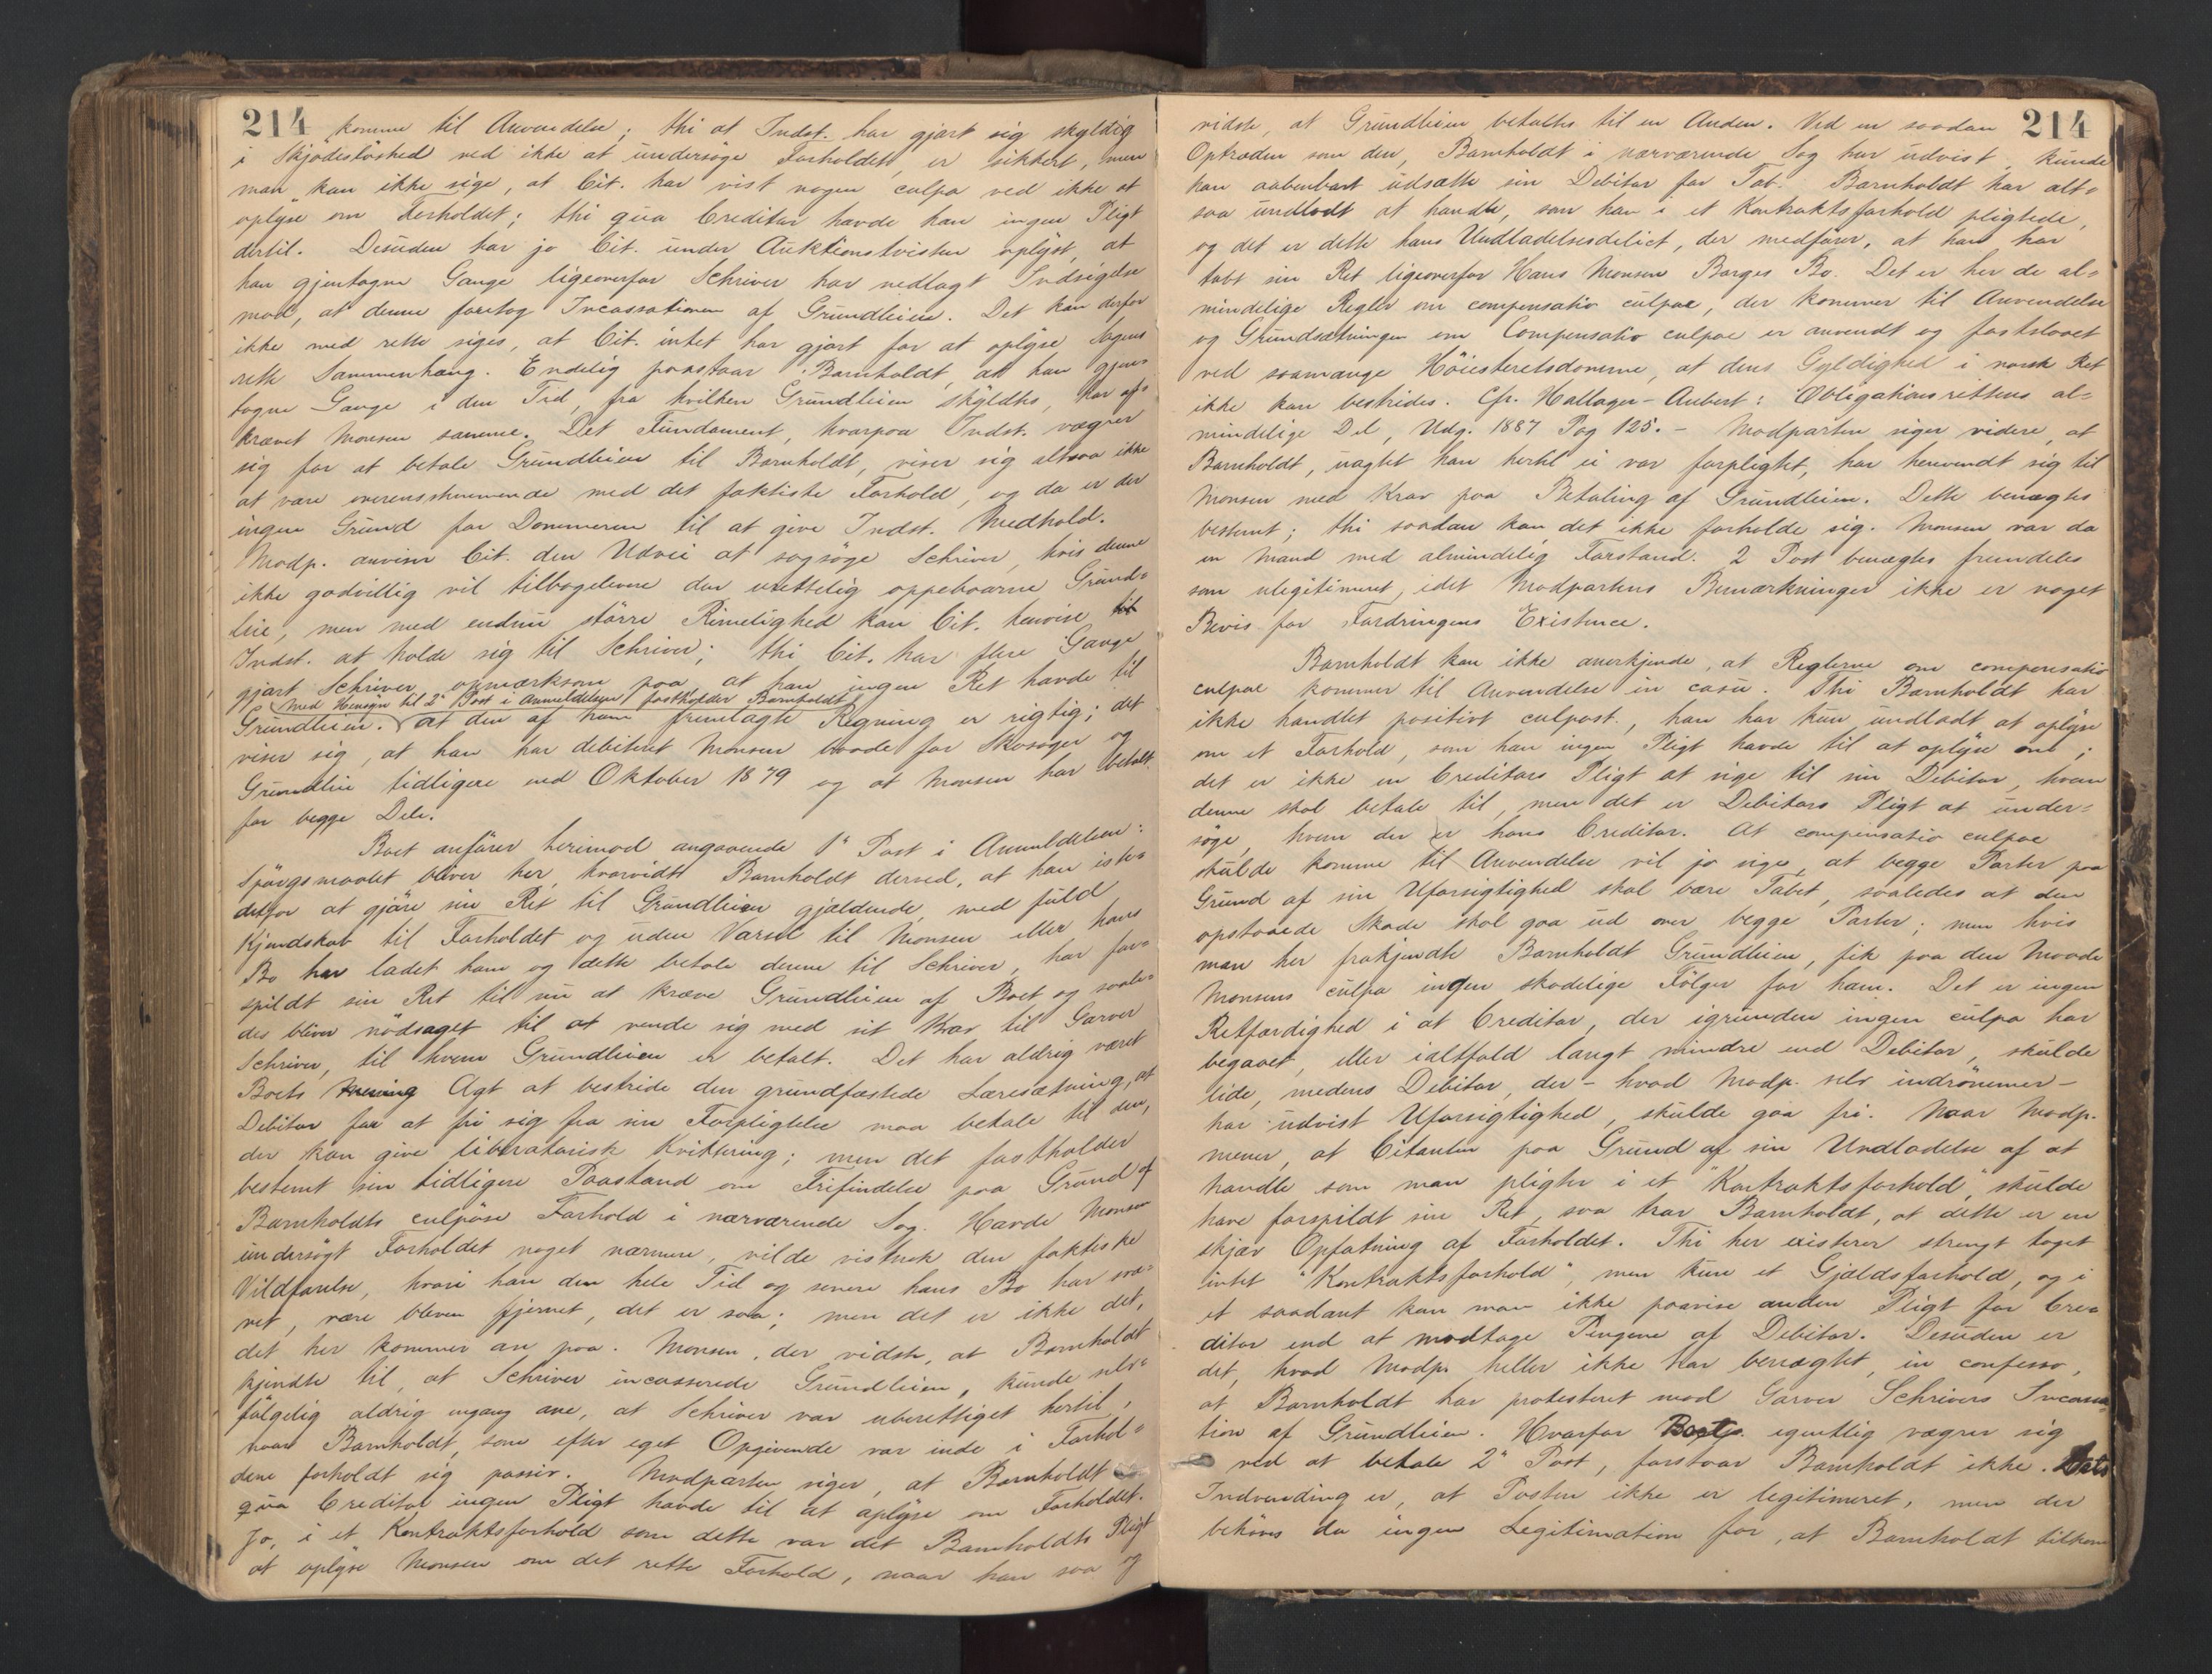 214 komme til Anvendelse; thi at Indst. har gjort sig skyldig
i Skjödeslöshed ved ikke at undersöge Forholdet, er sikkert, men
man kan ikke sige, at Cit. har vist nogen culpa ved ikke at
oplyse om Forholdet; thi qua Creditor havde han ingen Pligt
dertil. Desuden har jo Cit. under Auktionstvisten oplyst, at
han gjentagne Gange ligeoverfor Schriver har nedlagt Indsigelse
mod, at denne foretog Incassationen af Grundleien. Det kan derfor
ikke med rette siges, at Cit. intet har gjort for at oplyse Sagens
rette Sammenhæng. Endelig paastaar Barnholdt, at han gjen-
tagne Gange i den Tid, fra hvilken Grundleien skyldtes, har af-
krævet Monsen samme. Det Fundament, hvorpaa Indst. vægrer
sig for at betale Grundleien til Barnholdt, viser sig altsaa ikke
at være overensstemmende med det faktiske Forhold, og da er der
ingen Grund for Dommeren til at give Indst. Medhold.
Modp. anviser Cit. den Udvei at sagsöge Schriver, hvis denne
ikke godvillig vil tilbagelevere den urettelig oppebaarne Grund-
leie, men med endnu större Rimelighed kan Cit. henvise til
Indst. at holde sig til Schriver; thi Cit. har flere Gange
gjort Schriver opmærksom paa, at han ingen Ret havde til
med Hensyn til 2' Post i Anmeldelsen fastholder Barnholdt
Grundleien. at den af ham fremlagte Regning er rigtig; det
viser sig, at han har debiteret Monsen baade for Skosager og
Grundleie tidligere end Oktober 1879 og at Monsen har betalt
for begge Dele.
Boet anförer herimod angaaende 1' Post i Anmeldelsen:
Spörgsmaalet bliver her, hvorvidt Barnholdt derved, at han iste-
detfor at gjöre sin Ret til Grundleien gjældende, med fuld
Kjendskab til Forholdet og uden Varsel til Monsen eller hans
Bo har ladet ham og dette betale denne til Schriver, har for-
spildt sin Ret til nu at kræve Grundleien af Boet og saale-
des bliver nödsaget til at vende sig med sit Krav til Garver
Schriver, til hvem Grundleien er betalt. Det har aldrig været
Boets mening Agt at bestride den grundfæstede Læresætning, at
Debitor for at fri sig fra sin Forpligtelse maa betale til den,
der kan give liberatorisk Kvittering; men det fastholder
bestemt sin tidligere Paastand om Frifindelse paa Grund af
Barnholdts culpöse Forhold i nærværende Sag. Havde Monsen
undersögt Forholdet noget nærmere, vilde vistnok den faktiske
Vildfarelse, hvori han den hele Tid og senere hans Bo har svæ-
vet, være bleven fjernet, det er saa; men det er ikke det,
det her kommer an paa. Monsen, der vidste, at Barnholdt
kjendte til, at Schriver incasserede Grundleien, kunde selv-
fölgelig aldrig engang ane, at Schriver var uberettiget hertil,
naar Barnholdt, som efter eget Opgivende var inde i Forhol-
dene forholdt sig passiv. Modparten siger, at Barnholdt
qua Creditor ingen Pligt havde til at oplyse om Forholdet.
Jo, i et Kontraktsforhold som dette var det Barnholdts Pligt
at oplyse Monsen om det rette Forhold, naar han saa og
vidste, at Grundleien betaltes til en Anden. Ved en saadan 214
Optræden som den, Barnholdt i nærværende Sag har udvist, kunde
kan aabenbart udsætte sin Debitor for Tab. Barnholdt har alt-
saa undladt at handle, som han i et Kontraktsforhold pligtede,
og det er dette hans Undladelsesdelict, der medförer, at han har
tabt sin Ret ligeoverfor Hans Monsen Borges Bo. Det er her de al-
mindelige Regler om compensatio culpae, der kommer til Anvendelse
og Grundsætningen om Compensatio culpae er anvendt og fastslaaet
ved saamange Höiesteretsdomme, at dens Gyldighed i norsk Ret
ikke kan bestrides. Cfr. Hallager-Aubert: Obligationsrettens al-
mindelige Del, Udg. 1887 Pag 125. - Modparten siger videre, at
Barnholdt, uagtet han hertil ei var forpligtet, har henvendt sig til
Monsen med Krav paa Betaling af Grundleien. Dette benægtes
bestemt; thi saadan kan det ikke forholde sig. Monsen var da
en Mand med almindelig Forstand. 2 Post benægtes fremdeles
som ulegitimeret, idet Modpartens Bemærkninger ikke er noget
Bevis for Fordringens Existence.
Barnholdt kan ikke anerkjende, at Reglerne om compensatio
culpae kommer til Anvendelse in casu. Thi Barnholdt har
ikke handlet positivt culpost, han har kun undladt at oplyse
om et Forhold, som han ingen Pligt havde til at oplyse om;
det er ikke en Creditors Pligt at sige til sin Debitor, hvem
denne skal betale til, men det er Debitors Pligt at under-
söge, hvem der er hans Creditor. At compensatio culpae
skulde komme til Anvendelse vil jo sige, at begge Parter paa
Grund af sin Uforsigtighed skal bære Tabet, saaledes at den
opstaaede Skade skal gaa ud over begge Parter; men hvis
man her frakjendte Barnholdt Grundleien, fik paa den Maade
Monsens culpa ingen skadelige Fölger for ham. Det er ingen
Retfærdighed i at Creditor, der igrunden ingen culpa har
begaaet, eller ialtfald langt mindre end Debitor, skulde
lide, medens Debitor, der - hvad Modp. selv indrömmer -
har udvist Uforsigtighed, skulde gaa fri. Naar Modp.
mener, at Citanten paa Grund af sin Undladelse af at
handle som man pligter i et "Kontraktsforhold", skulde
have forspildt sin Ret, saa tror Barnholdt, at dette er en
skjæv Opfatning af Forholdet. Thi her existerer strengt taget
intet "Kontraktsforhold", men kun et Gjældsforhold, og i
et saadant kan man ikke paavise anden Pligt for Cre-
ditor end at modtage Pengene af Debitor. Desuden er
det, hvad Modp. heller ikke har benægtet, in confesso,
at Barnholdt har protesteret mod Garver Schrivers Incassa-
tion af Grundleien. Hvorfor Boet egentlig vægrer sig
ved at betale 2' Post, forstaar Barnholdt ikke. Dets
Indvending er, at Posten ikke er legitimeret, men der
behöves da ingen Legitimation for, at Barnholdt tilkom